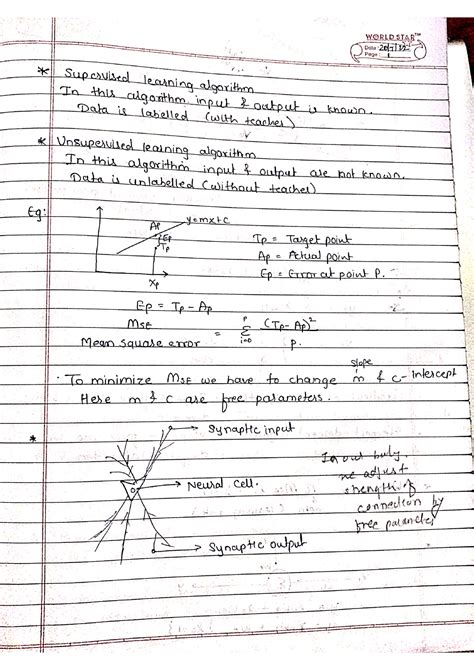 WORLD STAR™
Date : 20/7/22
Page : 1
* Supervised learning algorithm
In this algorithm input & output is known.
Data is labelled (with teacher)
* Unsupervised learning algorithm
In this algorithm input & output are not known.
Data is unlabelled (without teacher)
Eg:
y=mx+c
Ap
Ep
Tp
Xp
Tp = Target point
Ap = Actual point
Ep = Error at point P.
Ep = Tp - Ap
MSE
Mean square error = Σ (Tp - Ap)²
p
i=0
P.
slope
· To minimize MSE we have to change m & c - Intercept
Here m & c are free parameters.
*
→ Synaptic input
→ Neural cell.
→ Synaptic output
In our body
we adjust
strength of
connection by
free parameter